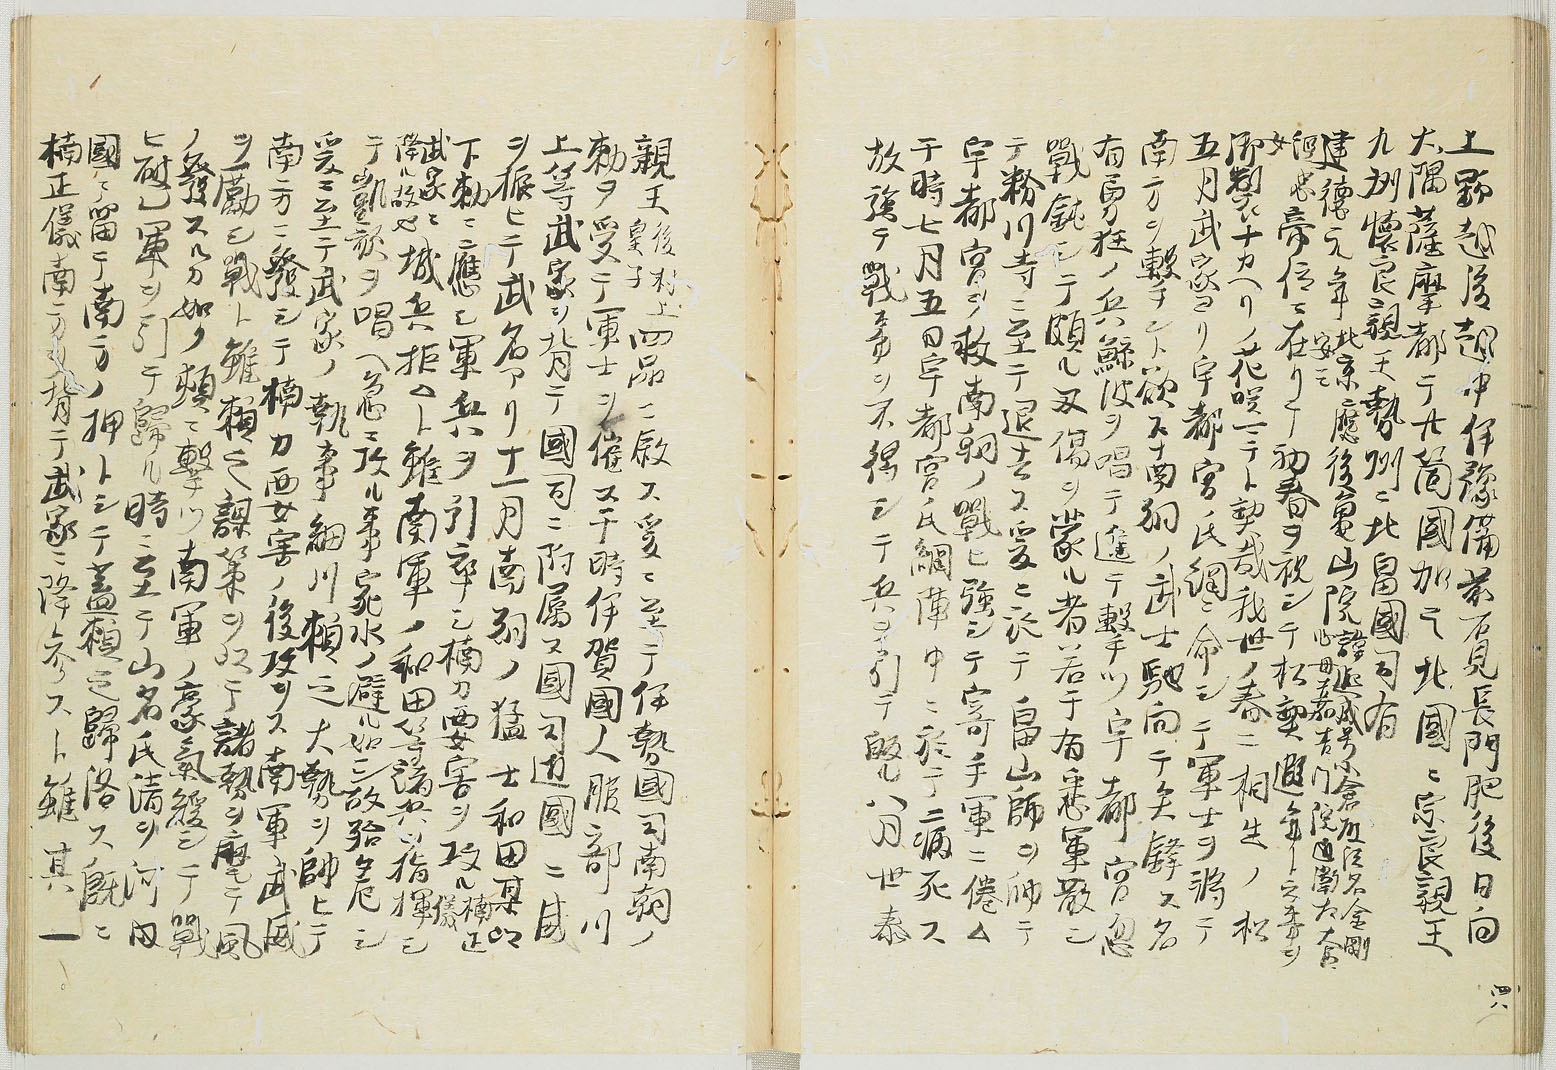 上野越後越中伊豫備前石見長門肥後日向
大隅薩摩都テ廿箇國加之北國ニ宗良親王
九州懐良親王勢州ニ北畠國司有
建德元年北京應安三後亀山院
帝位ニ在リテ初春ヲ祝シテ松契遐年ト云事ヲ
御製
十カヘリノ花咲ニテト契哉我世ノ春ニ相生ノ松
五月武家ヨリ宇都宮氏綱ニ命シテ軍士ヲ將テ
南方ヲ撃チント欲ス南朝ノ武士馳向テ矢鋒ス名
有勇狂ノ兵鯨波ヲ唱テ進テ撃ツ宇都宮忽
戰鈍シテ頗ル刃傷ヲ蒙ル者若干有悉軍散シ
テ粉川寺ニ至テ退去ス爰ニ於テ畠山師ヲ帥テ
宇都宮ヲ救南朝ノ戰ヒ強シテ寄手軍ニ倦ム
于時七月五日宇都宮氏綱陣中ニ於テ病死ス
故強テ戰事ヲ不得シテ兵ヲ引テ皈ル八月世泰
親王後村上皇子四品ニ敍ス爰ニ至テ伊勢國司南朝ノ
勅ヲ受テ軍士ヲ催ス于時伊賀國人服部川
上等武家ヲ背テ國司ニ附属ス國司近國ニ威
ヲ振ヒテ武名アリ十一月南朝ノ猛士和田某以
下勅ニ應シ軍兵ヲ引率シ楠力要害ヲ攻ル楠正儀
武家ニ降ル故也城兵拒ムト雖南軍ノ和田等諸兵ヲ指揮シ
テ凱歌ヲ唱ヘ急ニ攻ル事家水ノ避ル如シ故殆ト危シ
爰ニ至テ武家ノ執事細川頼之大勢ヲ帥ヒテ
南方ニ發シテ楠カ要害ノ後攻ヲス南軍武威
ヲ勵シ戰ト雖頼之謀策ヲ以テ諸勢ヲ麾テ風
ノ發スルカ如ク頻ニ撃ツ南軍ノ豪氣緩シテ戰
ヒ破レ軍ヲ引テ歸ル時ニ至テ山名氏清ヲ河内
國ニ留テ南方ノ押トシテ蓋頼之歸洛ス既ニ
楠正儀南方ヲ背テ武家ニ降參スト雖其一
四八